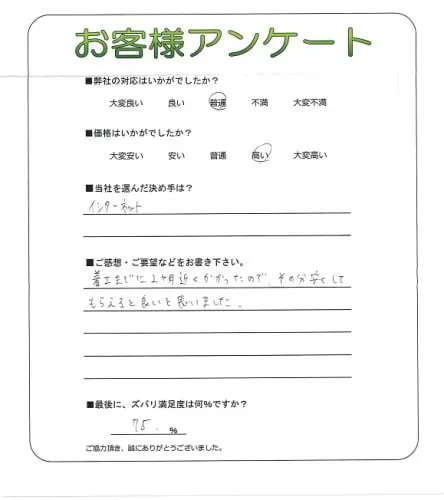 お客様アンケート
■弊社の対応はいかがでしたか?
大変良い 良い 普通 不満 大変不満
■価格はいかがでしたか?
大変安い 安い 普通 高い 大変高い
■当社を選んだ決め手は?
インターネット
■ご感想・ご要望などをお書き下さい。
着工までに2ヶ月近くかかったので、その分安くして
もらえると良いと思いました。
■最後に、ズバリ満足度は何%ですか?
75. %
ご協力頂き、誠にありがとうございました。